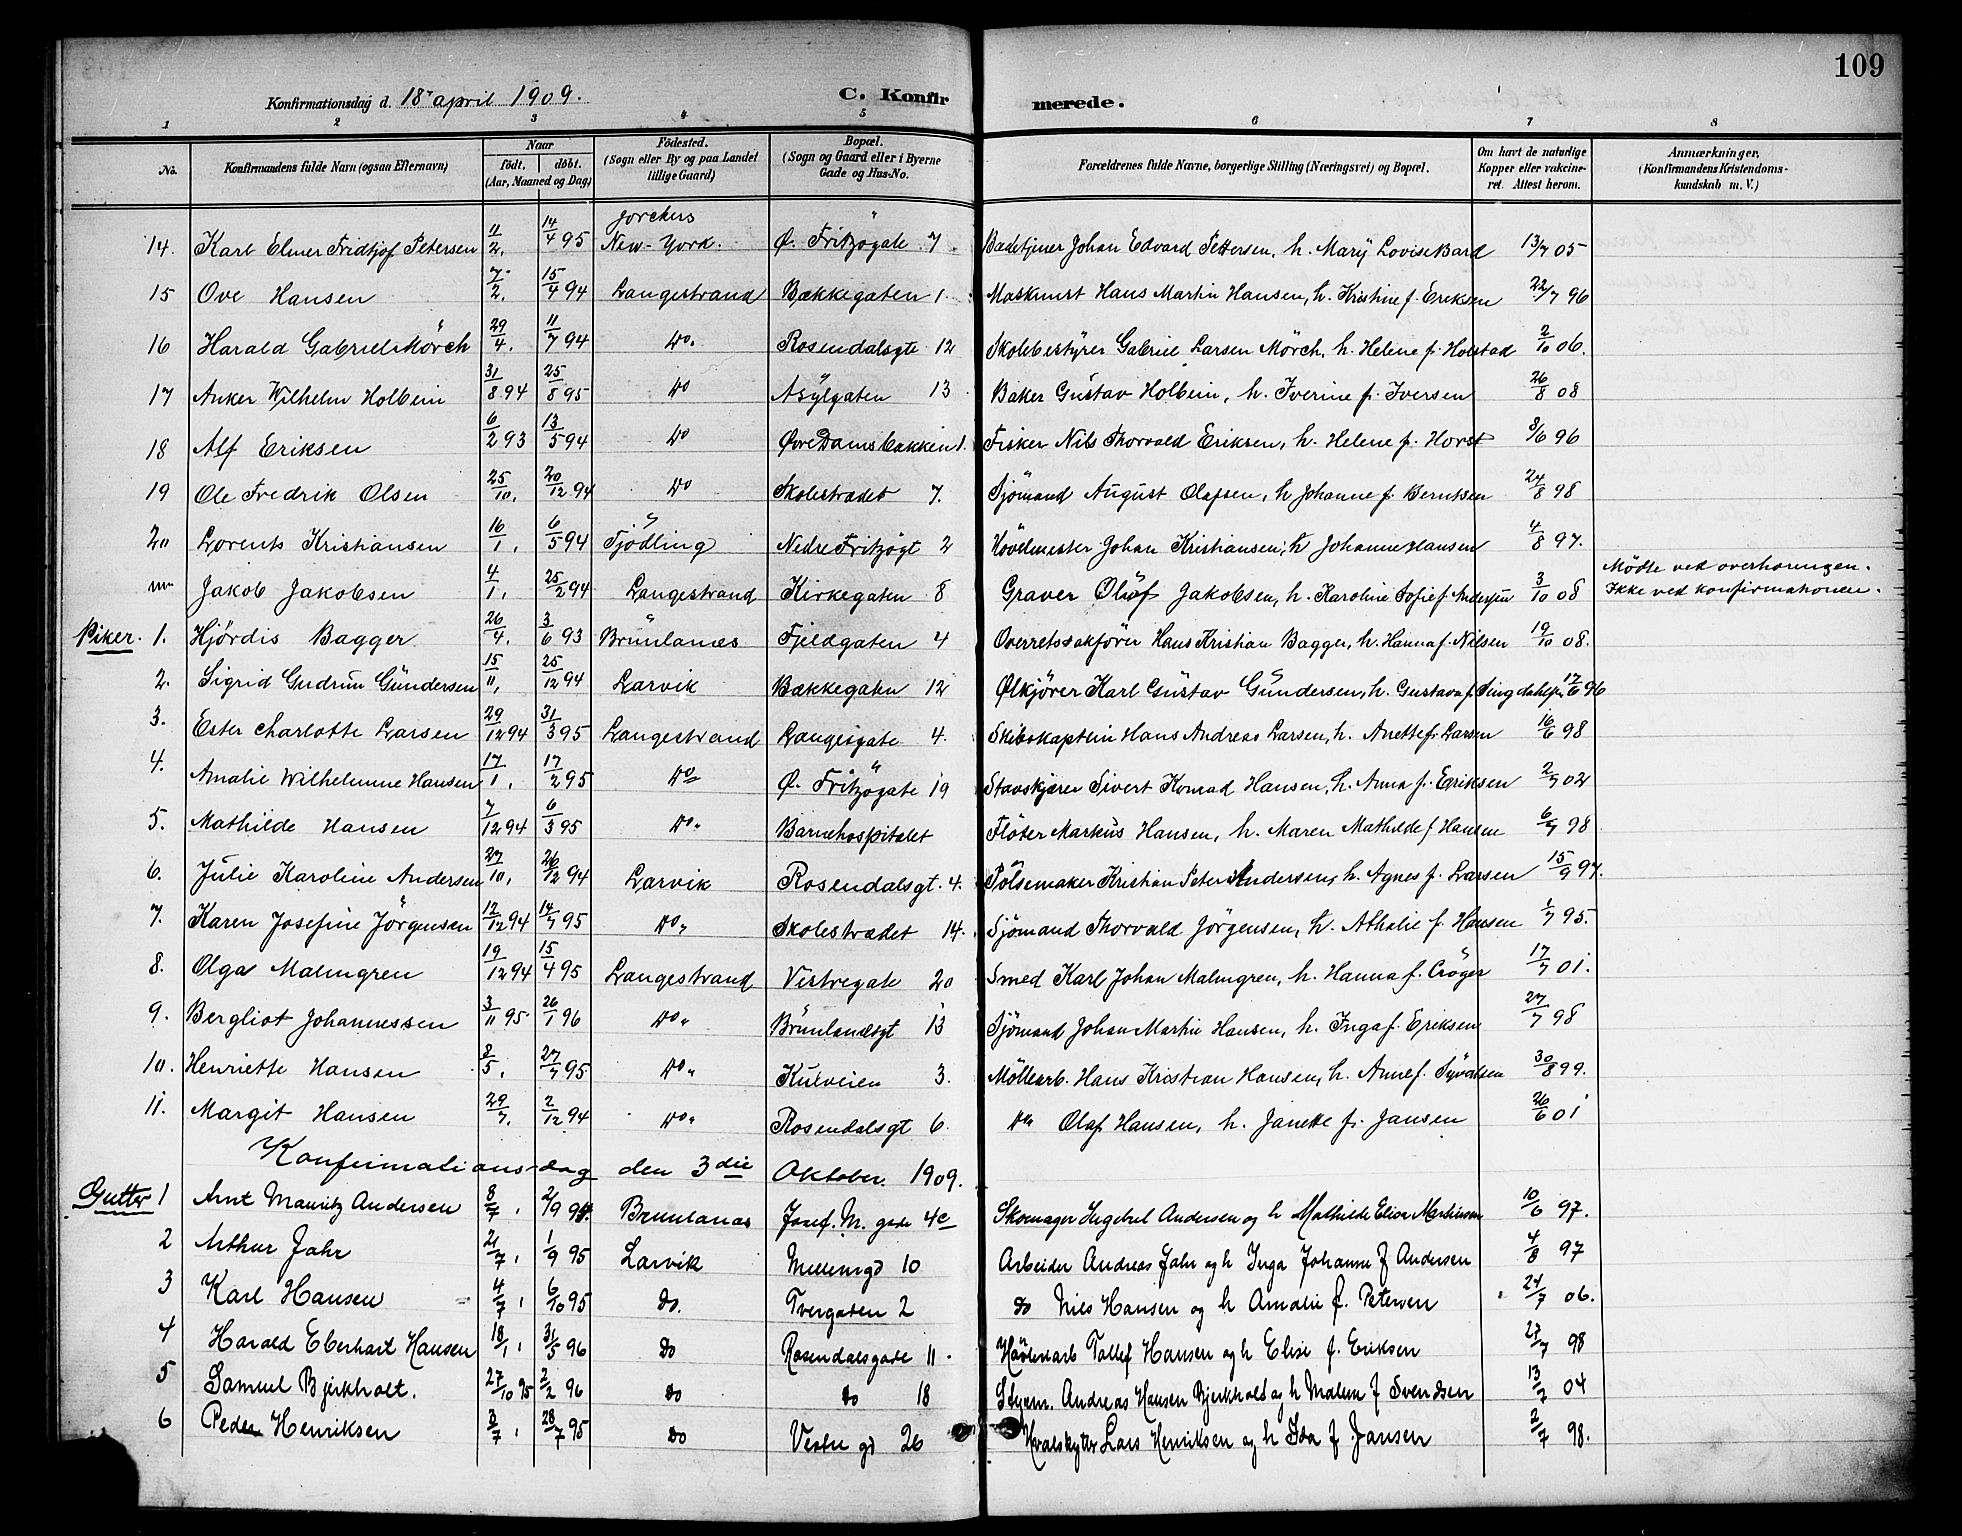 109
Konfirmationsdag d. 18' april 1909. C. Konfirmerede.
1 2 3 4 5 6 7 8
No. Konfirmandens fulde Navn (ogsaa Efternavn) Naar født. døbt. (Aar, Maaned og Dag) Fødested. (Sogn eller By og paa Landet tillige Gaard) Bopæl. (Sogn og Gaard eller i Byerne Gade og Hus-No. Forældrenes fulde Navne, borgerlige Stilling (Næringsvei) og Bopæl. Om havt de naturlige Kopper eller vakcineret. Attest herom. Anmærkninger, (Konfirmandens Kristendomskundskab m. V.)
14. Karl Elmer Fridtjof Petersen 11/2. 14/4 95 New-York. Ø. Fritzøgate 7. Badetjener Johan Edvard Pettersen, h. Marÿ Lovise Bard 13/7 05
15 Ove Hansen 7/2. 15/4 94 Langestrand Bækkegaten 1 Maskinist Hans Martin Hansen, h. Kristine f. Eriksen 22/7 96
16 Harald Gabriel Mörch 29/4. 11/7 94 Do. Rosendalsgte 12 Skolebestyrer Gabriel Larsen Mörch, h. Helene f. Holstad 2/10 06.
17 Anker Wilhelm Holbein 31/8 94 25/8 95 Do Asÿlgaten 13 Baker Gustav Holbein, h. Iverine f. Iversen 26/8 08
18 Alf Eriksen 6/2 93 13/5 94 Do Øvre Damsbakken 1. Fisker Nils Thorvald Eriksen, h. Helene f. Horst 8/6 96
19 Ole Fredrik Olsen 25/10, 20/12 94 Do Skolestrædet 7. Sjömand August Olafsen, h Johanne f. Berntsen 24/8 98
20 Lorents Kristiansen 16/1, 6/5 94 Tjödling Nedre Fritzögt 2 Hövelmester Johan Kristiansen, h Johanne Hansen 4/8 97.
Jakob Jakobsen 4/1, 25/2 94 Langestrand Kirkegaten 8 Graver Oluf Jakobsen, h. Karoline Sofie f Andersen 3/10 08 Mødte ved overhöringen. Ikke ved konfirmationen.
Piker. 1. Hjördis Bagger 26/4. 3/6 93 Brunlanæs Fjeldgaten 4 Overretssakförer Hans Kristian Bagger, h. Hanna f. Nilsen 19/10 08.
2. Sigrid Gudrun Gundersen 15/11, 25/12 94 Larvik Bækkegaten 12 Ølkjörer Karl Gustav Gundersen, h. Gustava f. 17/6 96
3. Ester Charlotte Larsen 29/12 94 31/3 95 Langestrand Langesgate 4. Skibskaptein Hans Andreas Larsen, h. Anette f. Larsen 16/6 98
4. Amalie Wilhelmine Hansen 17/1, 17/2 95 Do Ø. Fritzögate 19 Stavskjærer Sivert Konrad Hansen, h. Anna f. Eriksen 2/7 02
5. Mathilde Hansen 7/12 94 6/3 95 Do. Barnehospitalet Flöter Markus Hansen, h. Maren Mathilde f Hansen 6/7 98
6. Julie Karoline Andersen 27/10, 26/12 94 Larvik Rosendalsgt. 4. Pölsemaker Kristian Peter Andersen, h. Agnes f. Larsen 15/9 97.
7. Karen Josefine Jörgensen 12/12 94 14/7 95 Do. Skolestrædet 14. Sjömand Thorvald Jörgensen, h. Athalie f. Hansen 1/7 95.
8. Olga Malmgren 19/12 94 15/4 95 Langestrand Vestregate 20 Smed Karl Johan Malmgren, h. Hanna f. Cröger 17/7 01.
9. Bergliot Johannessen 3/11 95 26/1 96 Do. Brunlanæsgt 13 Sjömand Johan Martin Hansen, h. Inga f. Eriksen 27/7 98
10. Henriette Hansen 2/5. 27/7 95 Do. Kulveien 3. Möllearb. Hans Kristian Hansen, h. Anne f. Syvertsen 30/8 99.
11. Margit Hansen 29/7. 2/12 94 Do. Rosendalsgt 6. Do Olaf Hansen, h. Janette f. Jansen 26/6 01
Konfirmationsdag den 3die Oktober 1909.
Gutter 1 Arnt Mauritz Andersen 8/7, 2/9 94. Brunlanæs Josef. M. gade 4c Skomager Ingebret Andersen og h Mathilde Elise Martinsen 10/6 97.
2 Arthur Jahr 21/7, 1/9 95 Larvik Mellemgd 10 Arbeider Andreas Jahr og h Inga Johanne f Andersen 4/8 97
3 Karl Hansen 4/7, 6/10 95 do. Tvergaten 2 do Niels Hansen og h Amalie f. Petersen 24/7 06.
4 Harald Eberhart Hansen 18/1, 31/5 96 do Rosendalsgade 11. Høvlearb Tollef Hansen og h Elise f. Eriksen 27/7 98
5 Samuel Bjerkholt. 27/10 95 2/2 96 do do 18 Styrm. Andreas Hansen Bjerkholt og h Malene f Svendsen 13/7 04
6 Peder Henriksen 3/7, 28/7 95 do Vestre gd 26 Hvalskytter Lars Henriksen og h Ida f Jansen 2/7 98.